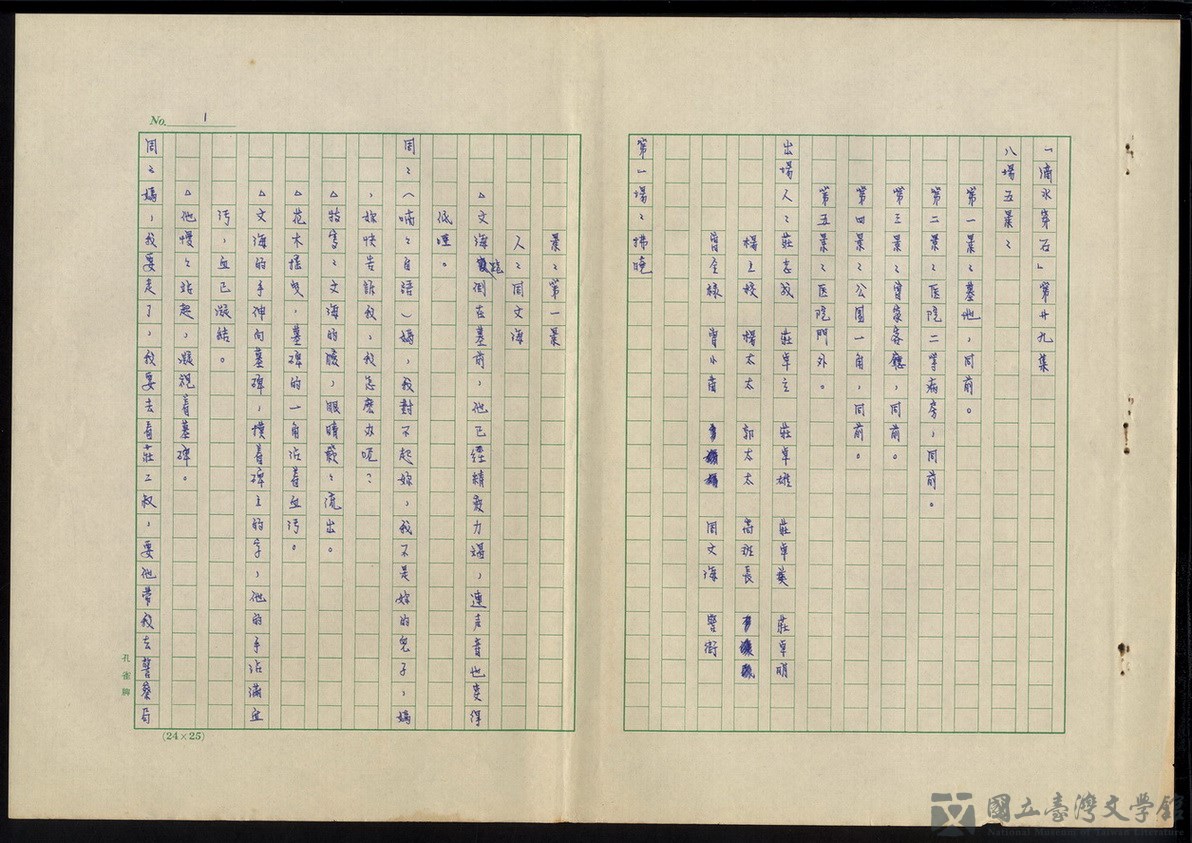 「滴水穿石」第廿九集
八場五景：
第一景：墓地，同前。
第二景：医院二等病房，同前。
第三景：曾家客廳，同前。
第四景：公園一角，同前。
第五景：医院門外。
出場人：莊孝敬 莊卓立 莊卓雄 莊卓英 莊卓明
楊上校 楊太太 郭太太 高班長
曾全祿 曾小青 周文海 警衛
第一場：拂曉
景：第一景
人：周文海
△文海跪倒在墓前，他已經精疲力竭，連声音也变得
低啞。
周：（喃喃自語）媽，我對不起妳，我不是妳的兒子，媽
，妳快告訴我，我怎麽办呢？
△特寫：文海的臉，眼睛 流出。
△花木摇曳，墓碑的一角沾着血污。
△文海的手伸向墓碑，摸着碑上的字，他的手沾滿血
污，血已凝結。
△他慢慢站起，凝視着墓碑。
周：媽，我要走了，我要去看莊二叔，要他带我去警察局
No. 1
(24×25)
孔雀牌
國立臺灣文學館
National Museum of Taiwan Literature